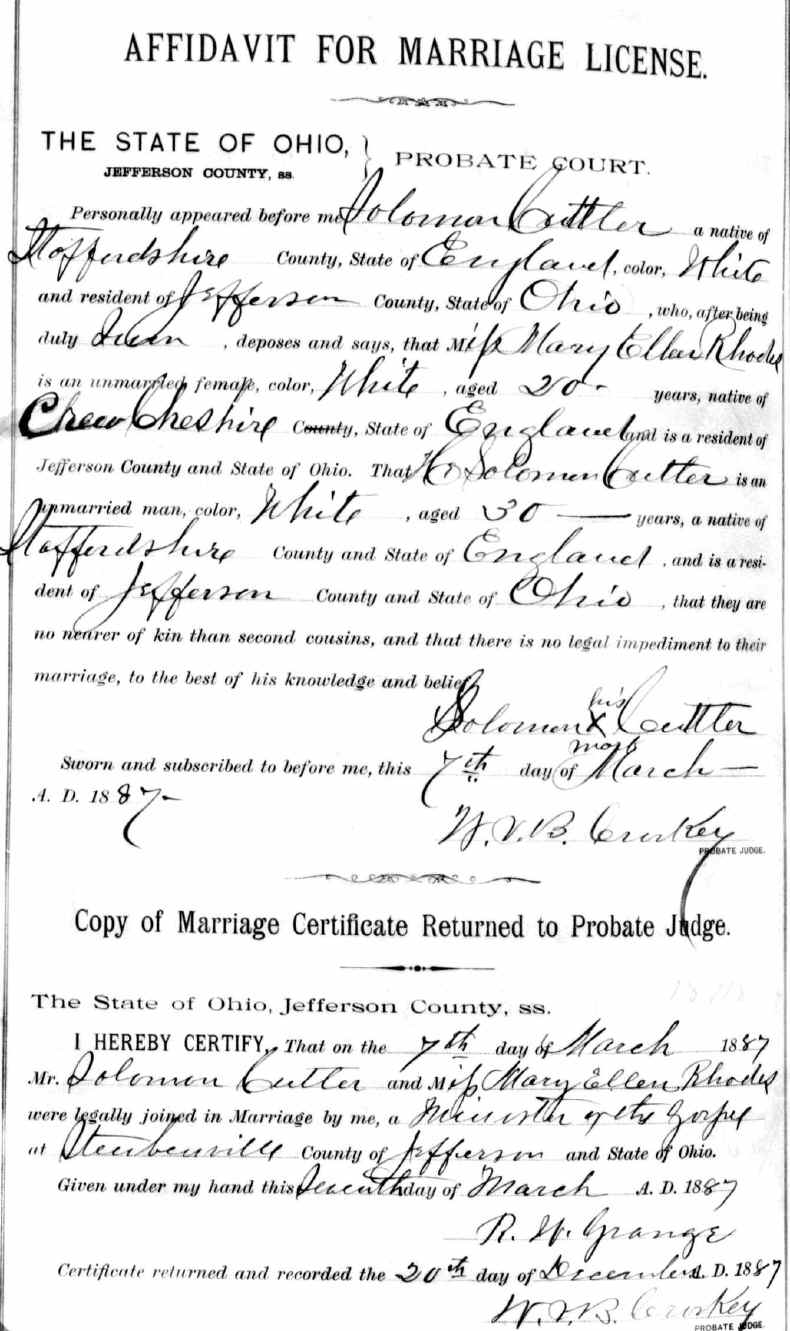 AFFIDAVIT FOR MARRIAGE LICENSE.
THE STATE OF OHIO, } PROBATE COURT.
JEFFERSON COUNTY, ss.
Personally appeared before me Solomon Cuttler a native of
Staffordshire County, State of England, color, White
and resident of Jefferson County, State of Ohio, who, after being
duly , deposes and says, that Miss Mary Ellen Rhodes
is an unmarried female, color, White, aged 20 - years, native of
Crew Cheshire County, State of England and is a resident of
Jefferson County and State of Ohio. That He Solomon Cuttler is an
unmarried man, color, White, aged 30 — years, a native of
Staffordshire County and State of England, and is a resi-
dent of Jefferson County and State of Ohio, that they are
no nearer of kin than second cousins, and that there is no legal impediment to their
marriage, to the best of his knowledge and belief.
his
Solomon X Cuttler
mark
Sworn and subscribed to before me, this 7th day of March —
A. D. 1887-
W. V. B. Croskey
PROBATE JUDGE.
Copy of Marriage Certificate Returned to Probate Judge.
The State of Ohio, Jefferson County, ss.
I HEREBY CERTIFY, That on the 7th day of March 1887
Mr. Solomon Cutler and Miss Mary Ellen Rhodes
were legally joined in Marriage by me, a Minister of the Gospel
at Steubenville County of Jefferson and State of Ohio.
Given under my hand this Seventh day of March A. D. 1887
R. W. Grange
Certificate returned and recorded the 20th day of December A. D. 1887
W. V. B. Croskey
PROBATE JUDGE.